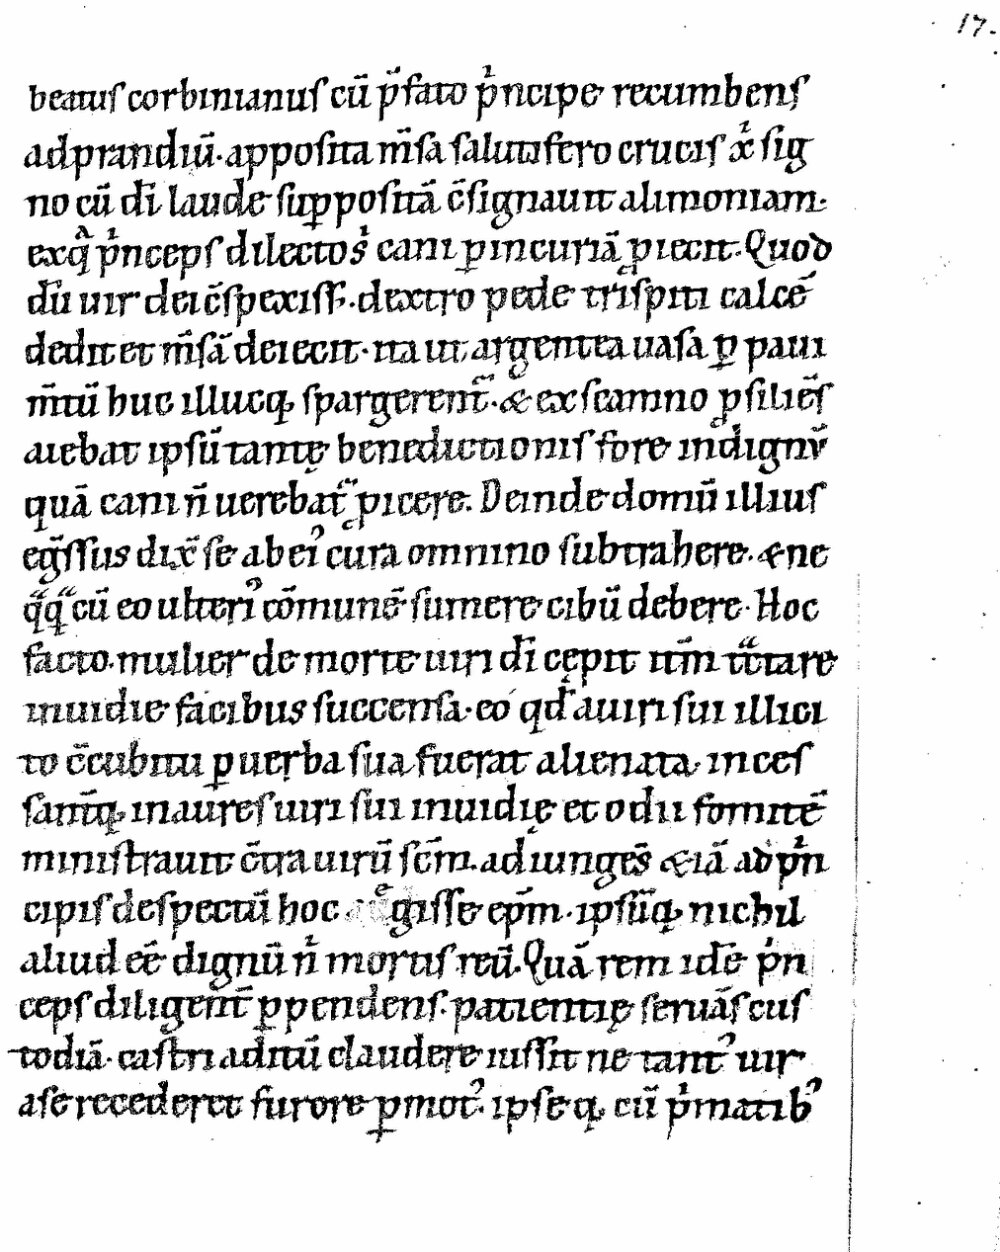 17.
beatuſ corbinianuſ cū p̄fato pͥncipe recumbenſ
ad prandiū· appoſita m̄ſa ſalutifero cruciſ xͥ ſig
no cū di̅ laude ſuppoſitā c̄ſignauit alimoniam·
ex qᷓ pͥncepſ dilectoſͥ cani ꝑ incuriā ꝓiecit· Quod
dū uir dei c̄ſpexiſſ&· dextro pede triſpiti calcē
dedit et m̄ſā deiecit· ita ut argentea uaſa ꝑ paui
m̄tū huc illucq; ſpargerent᷑· & ex ſcamno ꝓſiliēſ
aiebat ipſū tantę benedictioniſ fore indignū
quā cani n̄ uerebat᷑ ꝓicere. Deinde domū illiuſ
eg̅ſſus dix̅ ſe ab ei᾽ cura omnino ſubtrahere· & ne
qᷓqᷓ cū eo ulteri᾽ cōmunē ſumere cibū debere· Hoc
facto· mulier de morte uiri di̅ cępit it̅m tᷓctare
inuidie facibus ſuccenſa· eo qd̅ a uiri ſui illici
to c̄cubitu ꝑ uerba ſua fuerat alienata· inceſ
ſant̅q; in aureſ uiri ſui inuidię et odii fomitē
miniſtrauit c̄tra uirū ſc̄m· adiungēſ & iā ad pͥn
cipiſ deſpectū hoc egiſſe ep̄m· ipſūq; nichil
aliud eē dignū nͥ mortiſ reū· Quā rem idē pͥn
cepſ diligent̅ ꝑpendenſ· patientię ſeruāſ cuſ
todiā· caſtri aditū claudere iuſſit ne tant᾽ uir
a ſe recederet furore ꝑmot᾽· ipſeq; cū pͥmatib᾽